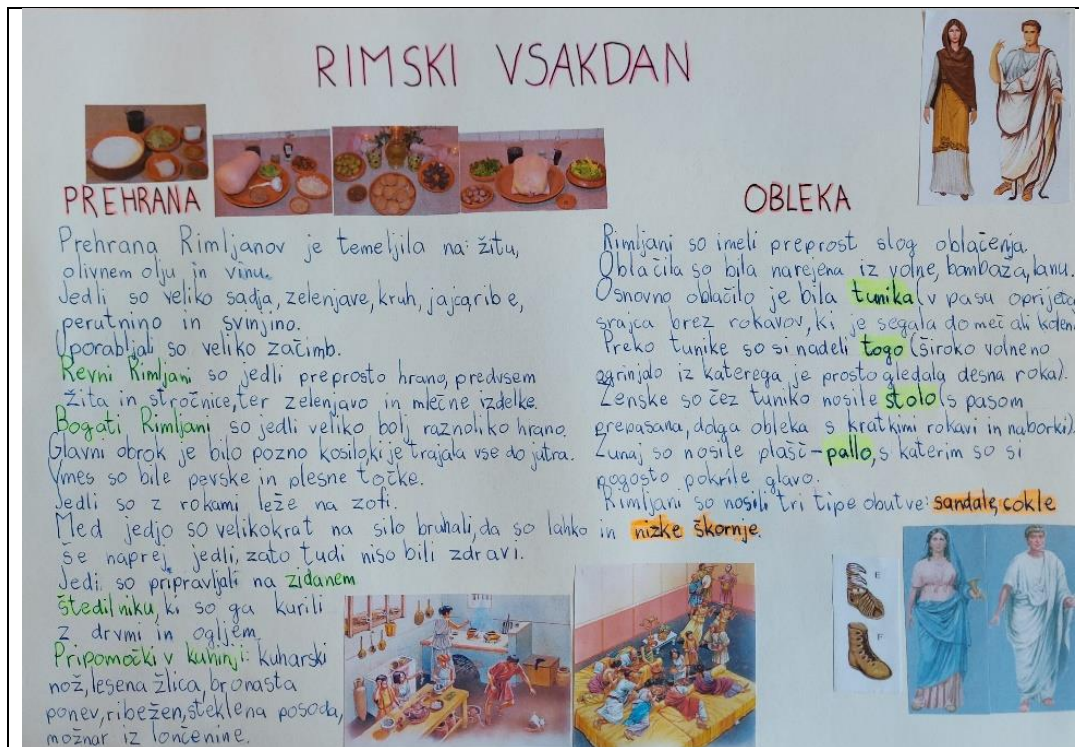 RIMSKI VSAKDAN
PREHRANA
Prehrana Rimljanov je temeljila na: žitu,
olivnem olju in vinu.
Jedli so veliko sadja, zelenjave, kruh, jajca, ribe,
perutnino in svinjino.
Uporabljali so veliko začimb.
Revni Rimljani so jedli preprosto hrano, predvsem
žita in stročnice, ter zelenjavo in mlečne izdelke.
Bogati Rimljani so jedli veliko bolj raznoliko hrano.
Glavni obrok je bilo pozno kosilo, ki je trajala vse do jutra.
Vmes so bile pevske in plesne točke.
Jedli so z rokami leže na zofi.
Med jedjo so velikokrat na silo bruhali, da so lahko
še naprej jedli, zato tudi niso bili zdravi.
Jedi so pripravljali na zidanem
štedilniku, ki so ga kurili
z drvmi in ogljem.
Pripomočki v kuhinji: kuharski
nož, lesena žlica, bronasta
ponev, ribežen, steklena posoda,
možnar iz lončenine.
OBLEKA
Rimljani so imeli preprost slog oblačenja.
Oblačila so bila narejena iz volne, bombaža, lanu.
Osnovno oblačilo je bila tunika (v pasu oprijeta
srajca brez rokavov, ki je segala do meč ali kolen
Preko tunike so si nadeli togo (široko volneno
ogrinjalo iz katerega je prosto gledala desna roka).
Ženske so čez tuniko nosile štolo (s pasom
prepasana, dolga obleka s kratkimi rokavi in naborki).
Zunaj so nosile plašč - pallo, s katerim so si
pogosto pokrile glavo.
Rimljani so nosili tri tipe obutve: sandale, cokle
in nizke škornje.
E
F